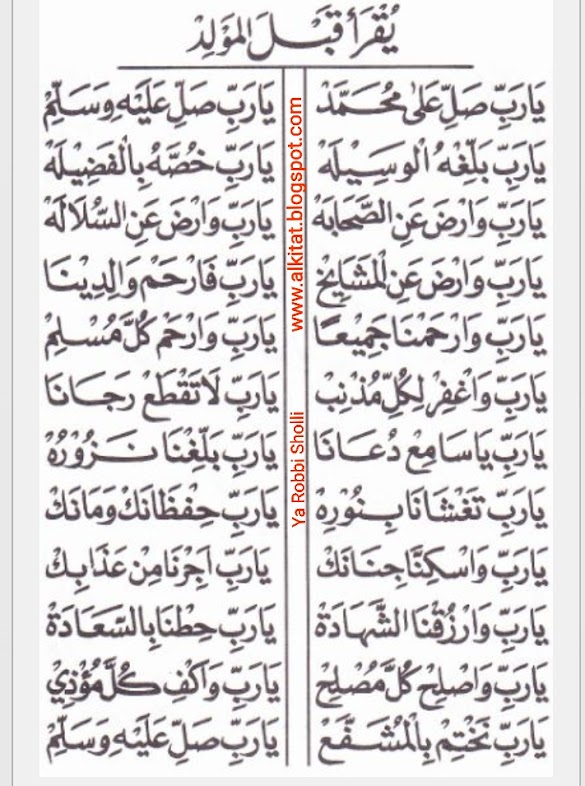 يُقْرَأُ قَبْلَ المَوْلِدْ
يَارَبِّ صَلِّ عَلىٰ مُحَمَّدْ يَارَبِّ صَلِّ عَلَيْهِ وَسَلِّمْ
يَارَبِّ بَلِّغْهُ الْوَسِيْلَهْ يَارَبِّ خُصَّهُ بِالْفَضِيْلَهْ
يَارَبِّ وَارْضَ عَنِ الصَّحَابَهْ يَارَبِّ وَارْضَ عَنِ السُّلَالَهْ
يَارَبِّ وَارْضَ عَنِ الْمَشَايِخْ يَارَبِّ فَارْحَمْ وَالِدِيْنَا
يَارَبِّ وَارْحَمْنَا جَمِيْعًا يَارَبِّ وَارْحَمْ كُلَّ مُسْلِمْ
يَارَبِّ وَاغْفِرْ لِكُلِّ مُذْنِبْ يَارَبِّ لَا تَقْطَعْ رَجَانَا
يَارَبِّ يَاسَامِعْ دُعَانَا يَارَبِّ بَلِّغْنَا نَزُوْرُهْ
يَارَبِّ تَغْشَانَا بِنُوْرِهْ يَارَبِّ حِفْظَانَكْ وَمَانَكْ
يَارَبِّ وَاسْكِنَّا جِنَانَكْ يَارَبِّ اَجِرْنَا مِنْ عَذَابِكْ
يَارَبِّ وَارْزُقْنَا الشَّهَادَةْ يَارَبِّ حِطْنَا بِالسَّعَادَةْ
يَارَبِّ وَاصْلِحْ كُلَّ مُصْلِحْ يَارَبِّ وَاكْفِ كُلَّ مُؤْذِيْ
يَارَبِّ نَخْتِمْ بِالْمُشَفَّعْ يَارَبِّ صَلِّ عَلَيْهِ وَسَلِّمْ
www.alkitat.blogspot.com
Ya Robbi Sholli